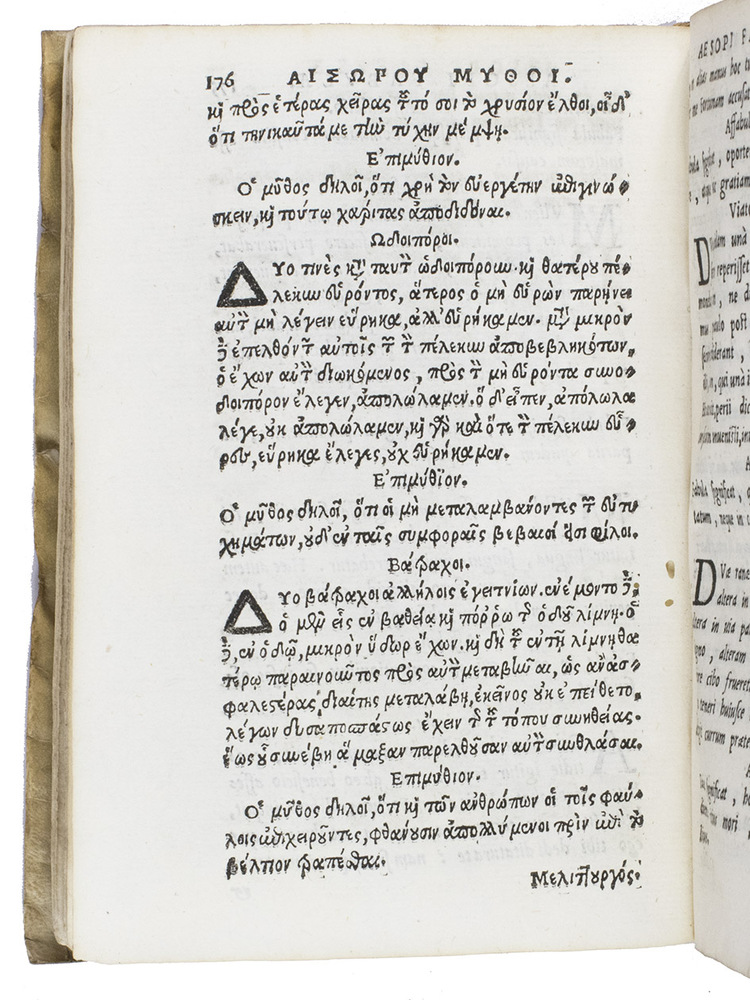 176 ΑΙΣΩΡΟΥ ΜΥΘΟΙ.
κỳ πρὸς ἑτέρας χεῖρας τοῦτό σοι τὸ χρυσίον ἔλθοι, οἶδ'
ὅτι τηνικαῦτά με τὴν τύχην μέμψῃ.
Ἐπιμύθιον.
Ὁ μῦθος δηλοῖ, ὅτι χρὴ τὸν εὐεργέτην ἐπιγινώ-
σκειν, κỳ τούτῳ χάριτας ἀποδιδόναι.
Ὡδοιπόροι.
ΔΥο τινὲς κατὰ ταυτὸν ὡδοιπόρουν. κỳ θατέρου πέ-
λεκυν εὑρόντος, ἅτερος ὁ μὴ εὑρὼν παρῄνει
αὐτὸν μὴ λέγειν εὕρηκα, ἀλλ' εὑρήκαμεν. μετὰ μικρὸν
δὲ ἐπελθόντων αὐτοῖς τῶν τὸν πέλεκυν ἀποβεβληκότων,
ὁ ἔχων αὐτὸν διωκόμενος, πρὸς τὸν μὴ εὑρόντα συνο-
δοιπόρον ἔλεγεν, ἀπολώλαμεν. ὁ δ' εἶπεν, ἀπόλωλα
λέγε, οὐκ ἀπολώλαμεν, κỳ γὰρ καὶ ὅτε τὸν πέλεκυν εὗ-
ρον, εὕρηκα ἔλεγες, οὐχ εὑρήκαμεν.
Ἐπιμύθϊον.
Ὁ μῦθος δηλοῖ, ὅτι οἱ μὴ μεταλαμβάνοντες τῶν εὐτυ-
χημάτων, οὐδ' ἐν ταῖς συμφοραῖς βέβαιοί εἰσι φίλοι.
Βάτραχοι.
ΔΥο βάτραχοι ἀλλήλοις ἐγειτνίων. ἐνέμοντο δὲ
ὁ μὲν εἷς ἐν βαθείᾳ κỳ πόρρω τῆς ὁδοῦ λίμνῃ. ὁ
δὲ, ἐν ὁδῷ, μικρὸν ὕδωρ ἔχων. κỳ δὴ τοῦ ἐν τῇ λίμνῃ θα-
τέρῳ παραινοῦντος πρὸς αὐτὸν μεταβῆναι, ὡς ἂν ἀσ-
φαλεστέρας διαίτης μεταλάβῃ, ἐκεῖνος οὐκ ἐπείθετο,
λέγων δυσαποσπάστως ἔχειν τῆς τοῦ τόπου συνηθείας.
ἕως οὗ συνέβη ἅμαξαν παρελθοῦσαν αὐτὸν συνθλάσαι.
Ἐπιμύθιον.
Ὁ μῦθος δηλοῖ, ὅτι κỳ τῶν ἀνθρώπων οἱ τοῖς φαύ-
λοις ἐπιχειροῦντες, φθάνουσιν ἀπολλύμενοι πρὶν ἐπὶ τὸ
βέλτιον τραπέσθαι.
Μελιττουργός.
AESOPI F
manus hoc
fortunam accusat
Affabul
oportet
gratiam
Viato
una
reperisset
ne d
post
qui una i
perii dic
A
in c
DVæ rane
altera in
in uia pa
alteram
cibo fruere
huiusce
currum præte
A
significat
mori